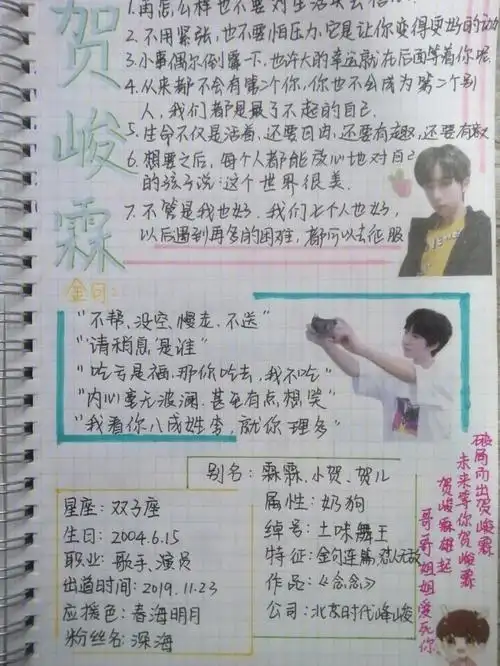 贺峻霖
1.再怎么样也不要对生活失去信
2.不用紧张,也不要怕压力,它是让你变得更好的动
3.小事偶尔倒霉一下,也许大的幸运就在后面等着你呢
4.从来都不会有第二个你,你也不会成为第二个别
人,我们都是最了不起的自己.
5.生命不仅是活着,还要自由,还要有趣,还要有
6.想要之后,每个人都能放心地对自己
的孩子说:这个世界很美.
7.不管是我也好.我们七个人也好,
以后遇到再多的困难,都可以去征服
金句:
"不帮、没空、慢走、不送"
"请稍息是谁"
"吃亏是福.那你吃去,我不吃"
"内心毫无波澜.甚至有点想笑"
"我看你八成姓李,就你理多"
别名:霖霖、小贺、贺儿
星座:双子座
生日:2004.6.15
职业:歌手、演员
出道时间:2019.11.23
应援色:春海明月
粉丝名:深海
属性:奶狗
绰号:土味舞王
特征:金句连篇,怼人无敌
作品:《念念》
公司:北京时代峰峻
破局而出贺峻霖
未来等你贺峻霖
贺峻霖雄起
哥哥姐姐爱死你